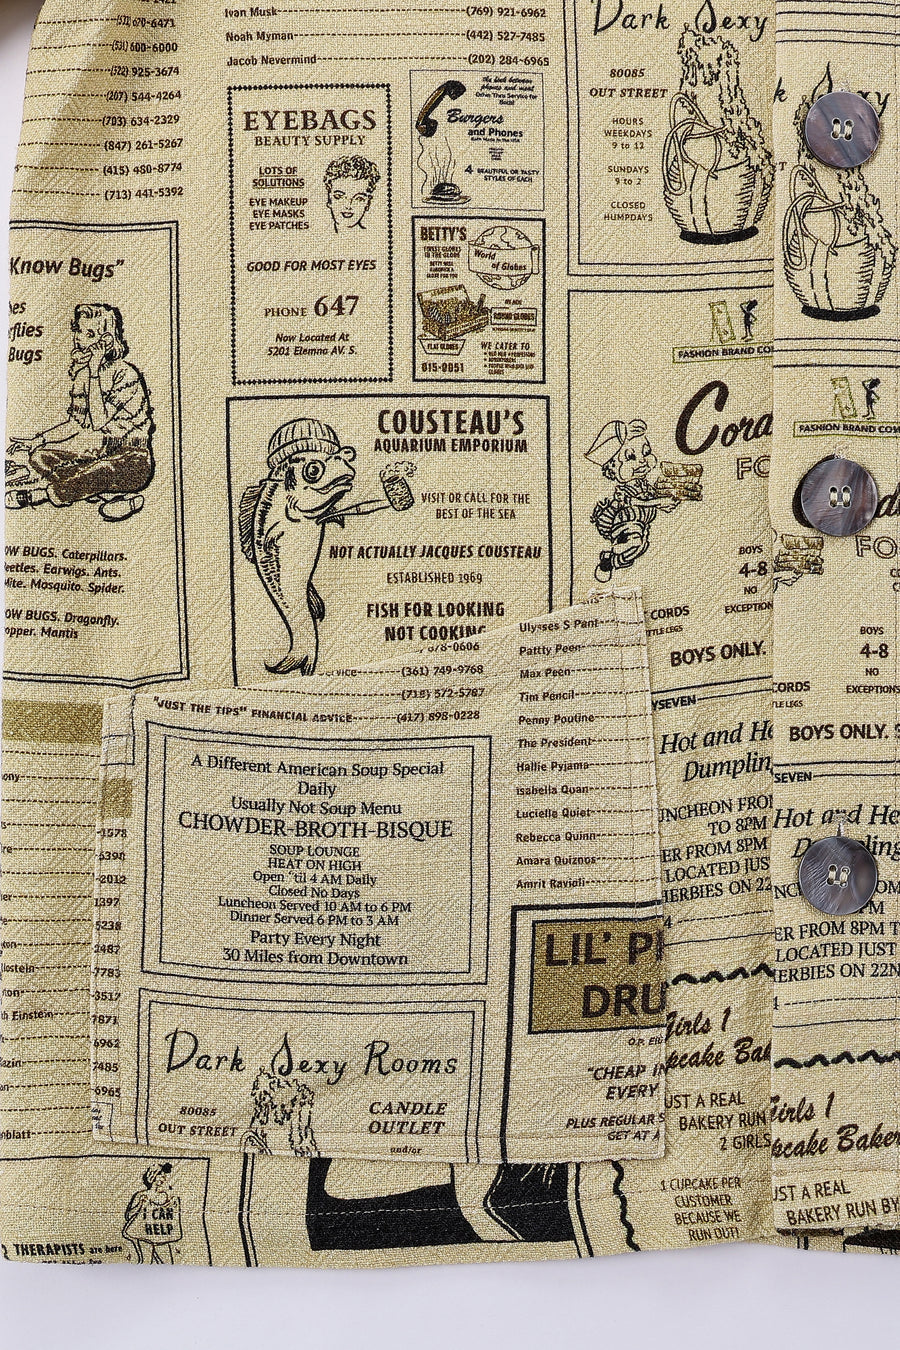 670-6471
600-6000
(522) 925-3674
(207) 544-4264
(703) 634-2329
(847) 261-5267
(415) 480-8774
(713) 441-5392
Ivan Musk (769) 921-6962
Noah Myman (442) 527-7485
Jacob Nevermind (202) 284-6965
Know Bugs"
Bugs
OW BUGS. Caterpillars.
eetles. Earwigs. Ants.
Mite. Mosquito. Spider.
OW BUGS. Dragonfly.
opper. Mantis
EYEBAGS
BEAUTY SUPPLY
LOTS OF
SOLUTIONS
EYE MAKEUP
EYE MASKS
EYE PATCHES
GOOD FOR MOST EYES
PHONE 647
Now Located At
5201 Elemno AV. S.
the link between
phones and meat
Burgers
and Phones
4 BEAUTIFUL OR TASTY
STYLES OF EACH
BETTY'S
World
of Globes
FLAT GLOBES
ROUND GLOBES
WE CATER TO
615-0051
Dark Sexy
80085
OUT STREET
HOURS
WEEKDAYS
9 to 12
SUNDAYS
9 to 2
CLOSED
HUMPDAYS
COUSTEAU'S
AQUARIUM EMPORIUM
VISIT OR CALL FOR THE
BEST OF THE SEA
NOT ACTUALLY JACQUES COUSTEAU
ESTABLISHED 1969
FISH FOR LOOKING
NOT COOKING
FASHION BRAND CO
Cord
FO
BOYS
4-8
NO
EXCEPTION
CORDS
BOYS ONLY.
FASHION BRAND COM
FO
BOYS
4-8
NO
EXCEPTIONS
CORDS
BOYS ONLY.
(361) 749-9768
(718) 572-5787
"JUST THE TIPS" FINANCIAL ADVICE (417) 898-0228
Ulysses S Pant
Pattty Peen
Max Peen
Tim Pencil
Penny Poutine
The President
Hallie Pyjama
Isabella Quan
Lucielle Quiet
Rebecca Quinn
Amara Quiznos
Amrit Ravioli
A Different American Soup Special
Daily
Usually Not Soup Menu
CHOWDER-BROTH-BISQUE
SOUP LOUNGE
HEAT ON HIGH
Open 'til 4 AM Daily
Closed No Days
Luncheon Served 10 AM to 6 PM
Dinner Served 6 PM to 3 AM
Party Every Night
30 Miles from Downtown
Dark Sexy Rooms
80085
OUT STREET
CANDLE
OUTLET
and/or
LIL' P
DRU
"CHEAP IN
EVERY
PLUS REGULAR S
GET AT A
YSEVEN
Hot and He
Dumplin
NCHEON FROM
TO 8PM
ER FROM 8PM
LOCATED JUS
HERBIES ON 22
SEVEN
Hot and He
ER FROM 8PM T
LOCATED JUST
HERBIES ON 22N
Girls 1
pcake Ba
UST A REAL
BAKERY RUN
2 GIRLS
1 CUPCAKE PER
CUSTOMER
BECAUSE WE
RUN OUT!
Girls 1
pcake Baker
UST A REAL
BAKERY RUN BY
1578
6390
2012
1397
5238
2482
7783
3517
7871
7485
6965
h Einstein
I CAN
HELP
THERAPISTS are here